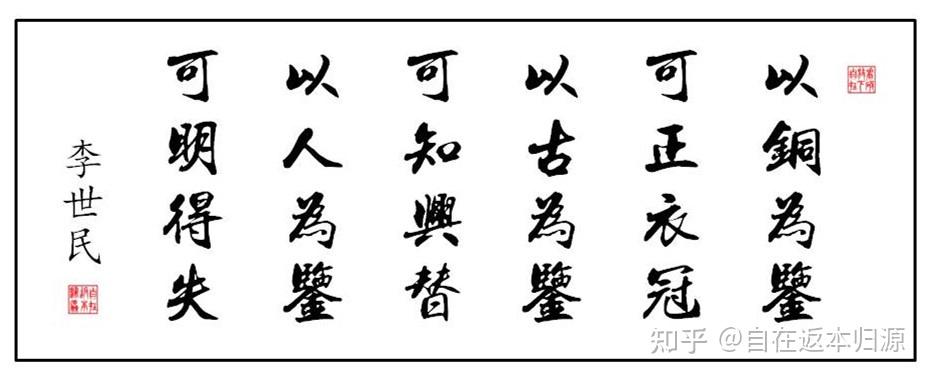 以銅為鑒
可正衣冠
以古為鑒
可知興替
以人為鑒
可明得失
李世民
知乎 @自在返本归源